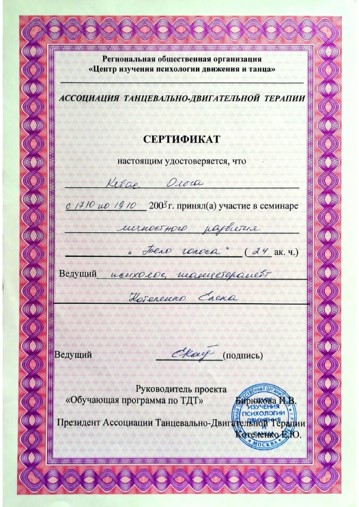 Региональная общественная организация
«Центр изучения психологии движения и танца»
АССОЦИАЦИЯ ТАНЦЕВАЛЬНО-ДВИГАТЕЛЬНОЙ ТЕРАПИИ
СЕРТИФИКАТ
настоящим удостоверяется, что
Ольга
с 17.10 по 19.10 2003г. принял(а) участие в семинаре
личностного развития
„Тело голоса“ ( 24 ак. ч.)
Ведущий психолог, танцетерапевт
Котеленко Елена
Ведущий (подпись)
Руководитель проекта
«Обучающая программа по ТДТ» Бирюкова И.В.
Президент Ассоциации Танцевально-Двигательной Терапии
Котеленко Е.Ю.
ИЗУЧЕНИЯ
ПСИХОЛОГИИ
ДВИЖЕНИЯ
МОСКВА